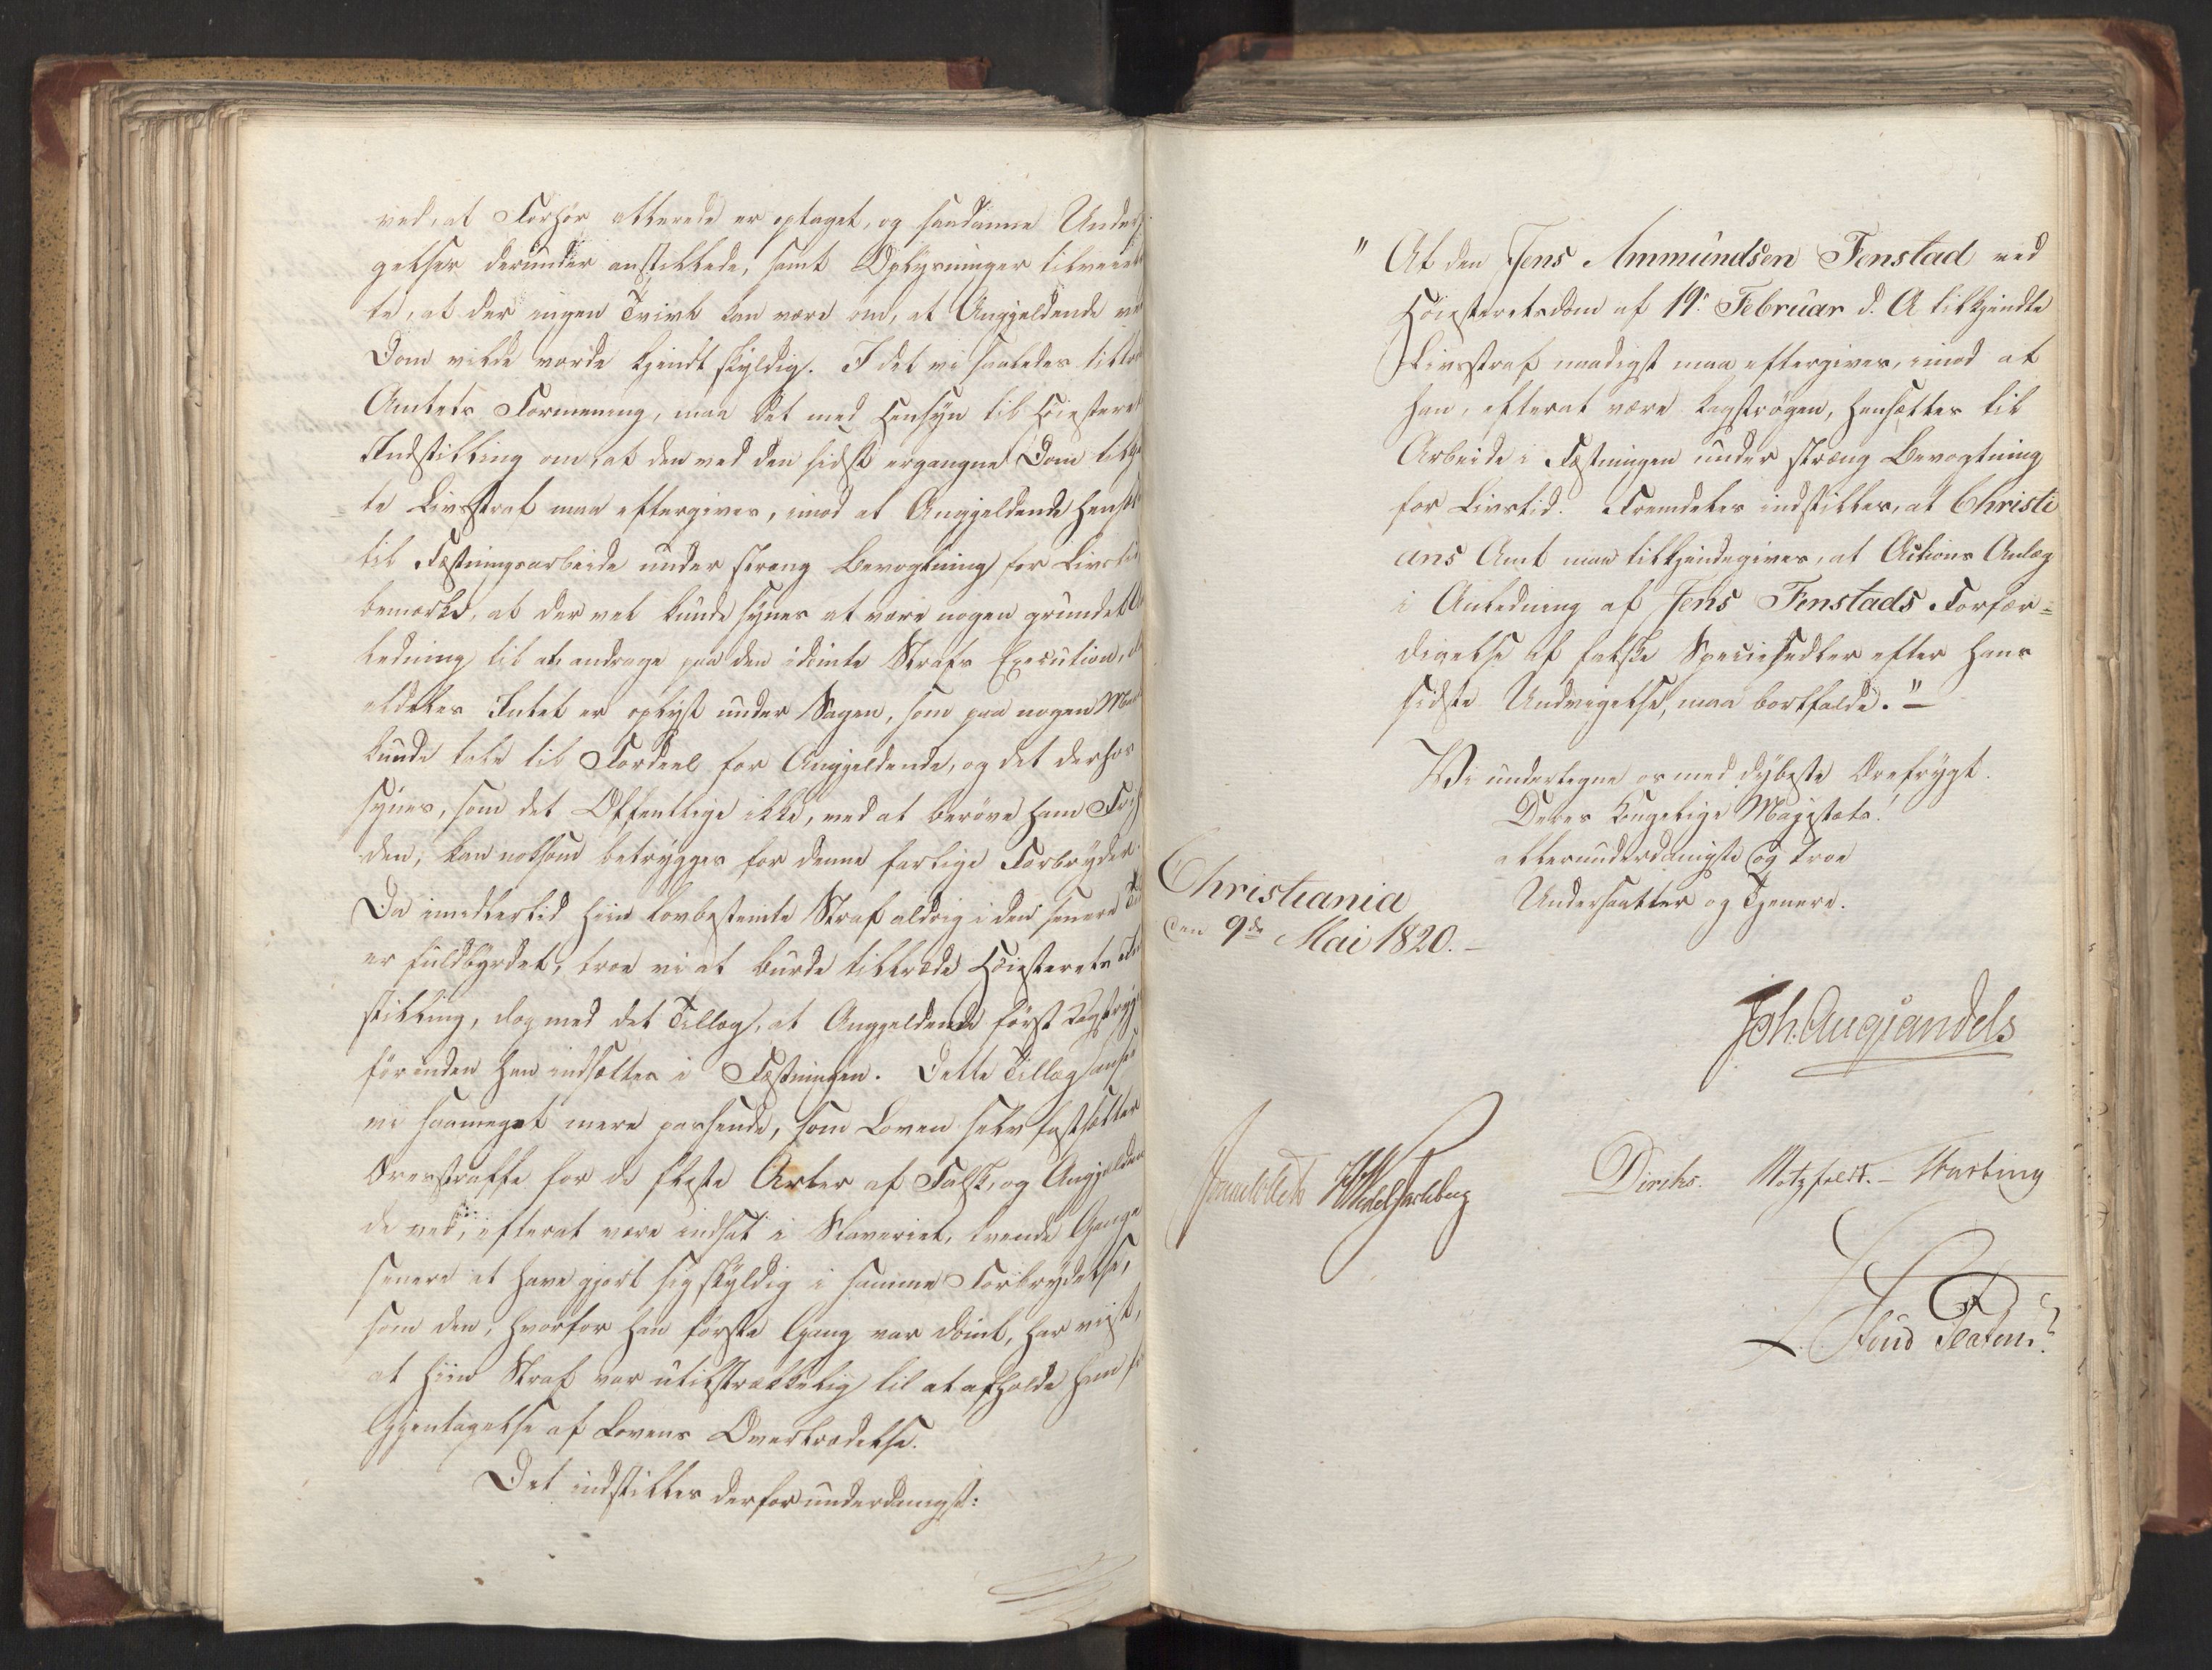 ved, at Forhør allerede er optaget, og saadanne Under
gelser derunder anstillede, samt Oplysninger tilveie
te, at der ingen Tvivl kan være om, at Angjeldende ve
Dom vilde vorde kjendt skyldig. I det vi saaledes
Amtets Formening, maa det med Hensyn til Høiestere
Indstilling om, at den ved den sidst ergangne Dom
te Livsstraf maa eftergives, imod at Angjeldende Hen
til Fæstningsarbeide under streng Bevogtning for
bemærkes, at der vel kunde synes at være nogen grundet
ledning til at andrage paa den idømte Strafs Execution,
aldeles Intet er oplyst under Sagen, som paa nogen
kunde tale til Fordeel for Angjeldende, og det derhos
synes, som det Offentlige ikke, ved at berøve ham
den, kan noksom betrygges for denne farlige Forbryder.
Da imidlertid hiin lovbestemte Straf aldrig i den senere
er fuldbyrdet, troe vi at burde tiltræde Høiesterets
stilling, dog med det Tillæg, at Angjeldende først
førinden han indsættes i Fæstningen. Dette Tillæg
vi saameget mere passende, som Loven selv fastsætter
Æresstraffe for de fleste Arter af Falsk, og Angjelden
de ved, efterat være indsat i Slaveriet, tvende Gange
senere at have gjort sig skyldig i samme Forbrydelse,
som den, hvorfor han første Gang var dömt, har viist,
at hiin Straf var utilstrækkelig til at afholde ham
Gjentagelse af Lovens Overtrædelse.
Det indstilles derfor underdanigst:
" At den Jens Ammundsen Fenstad ved
Høiesteretsdom af 19. Februar d. A tilkjendte
Livsstraf naadigst maa eftergives, imod at
han, efterat være kagstrøgen, hensættes til
Arbeide i Fæstningen under streng Bevogtning
for Livstid. Fremdeles indstilles, at Christi
ans Amt maa tilkjendegives, at Actions Anlæg
i Anledning af Jens Fenstads Forfær=
digelse af falske Speciesedler efter hans
sidste Undvigelse, maa bortfalde." –
Vi undertegne os med dybeste Ærefrygt.
Deres Kongelige Majestæts!
allerunderdanigste og troe
Undersaatter og Tjenere.
Christiania
den 9de Mai 1820. –
Joh. Aug. Sandels
Sommerhielm HWedelJarlsberg Diriks. Motzfeldt. – Fasting
L. Lund Platou.